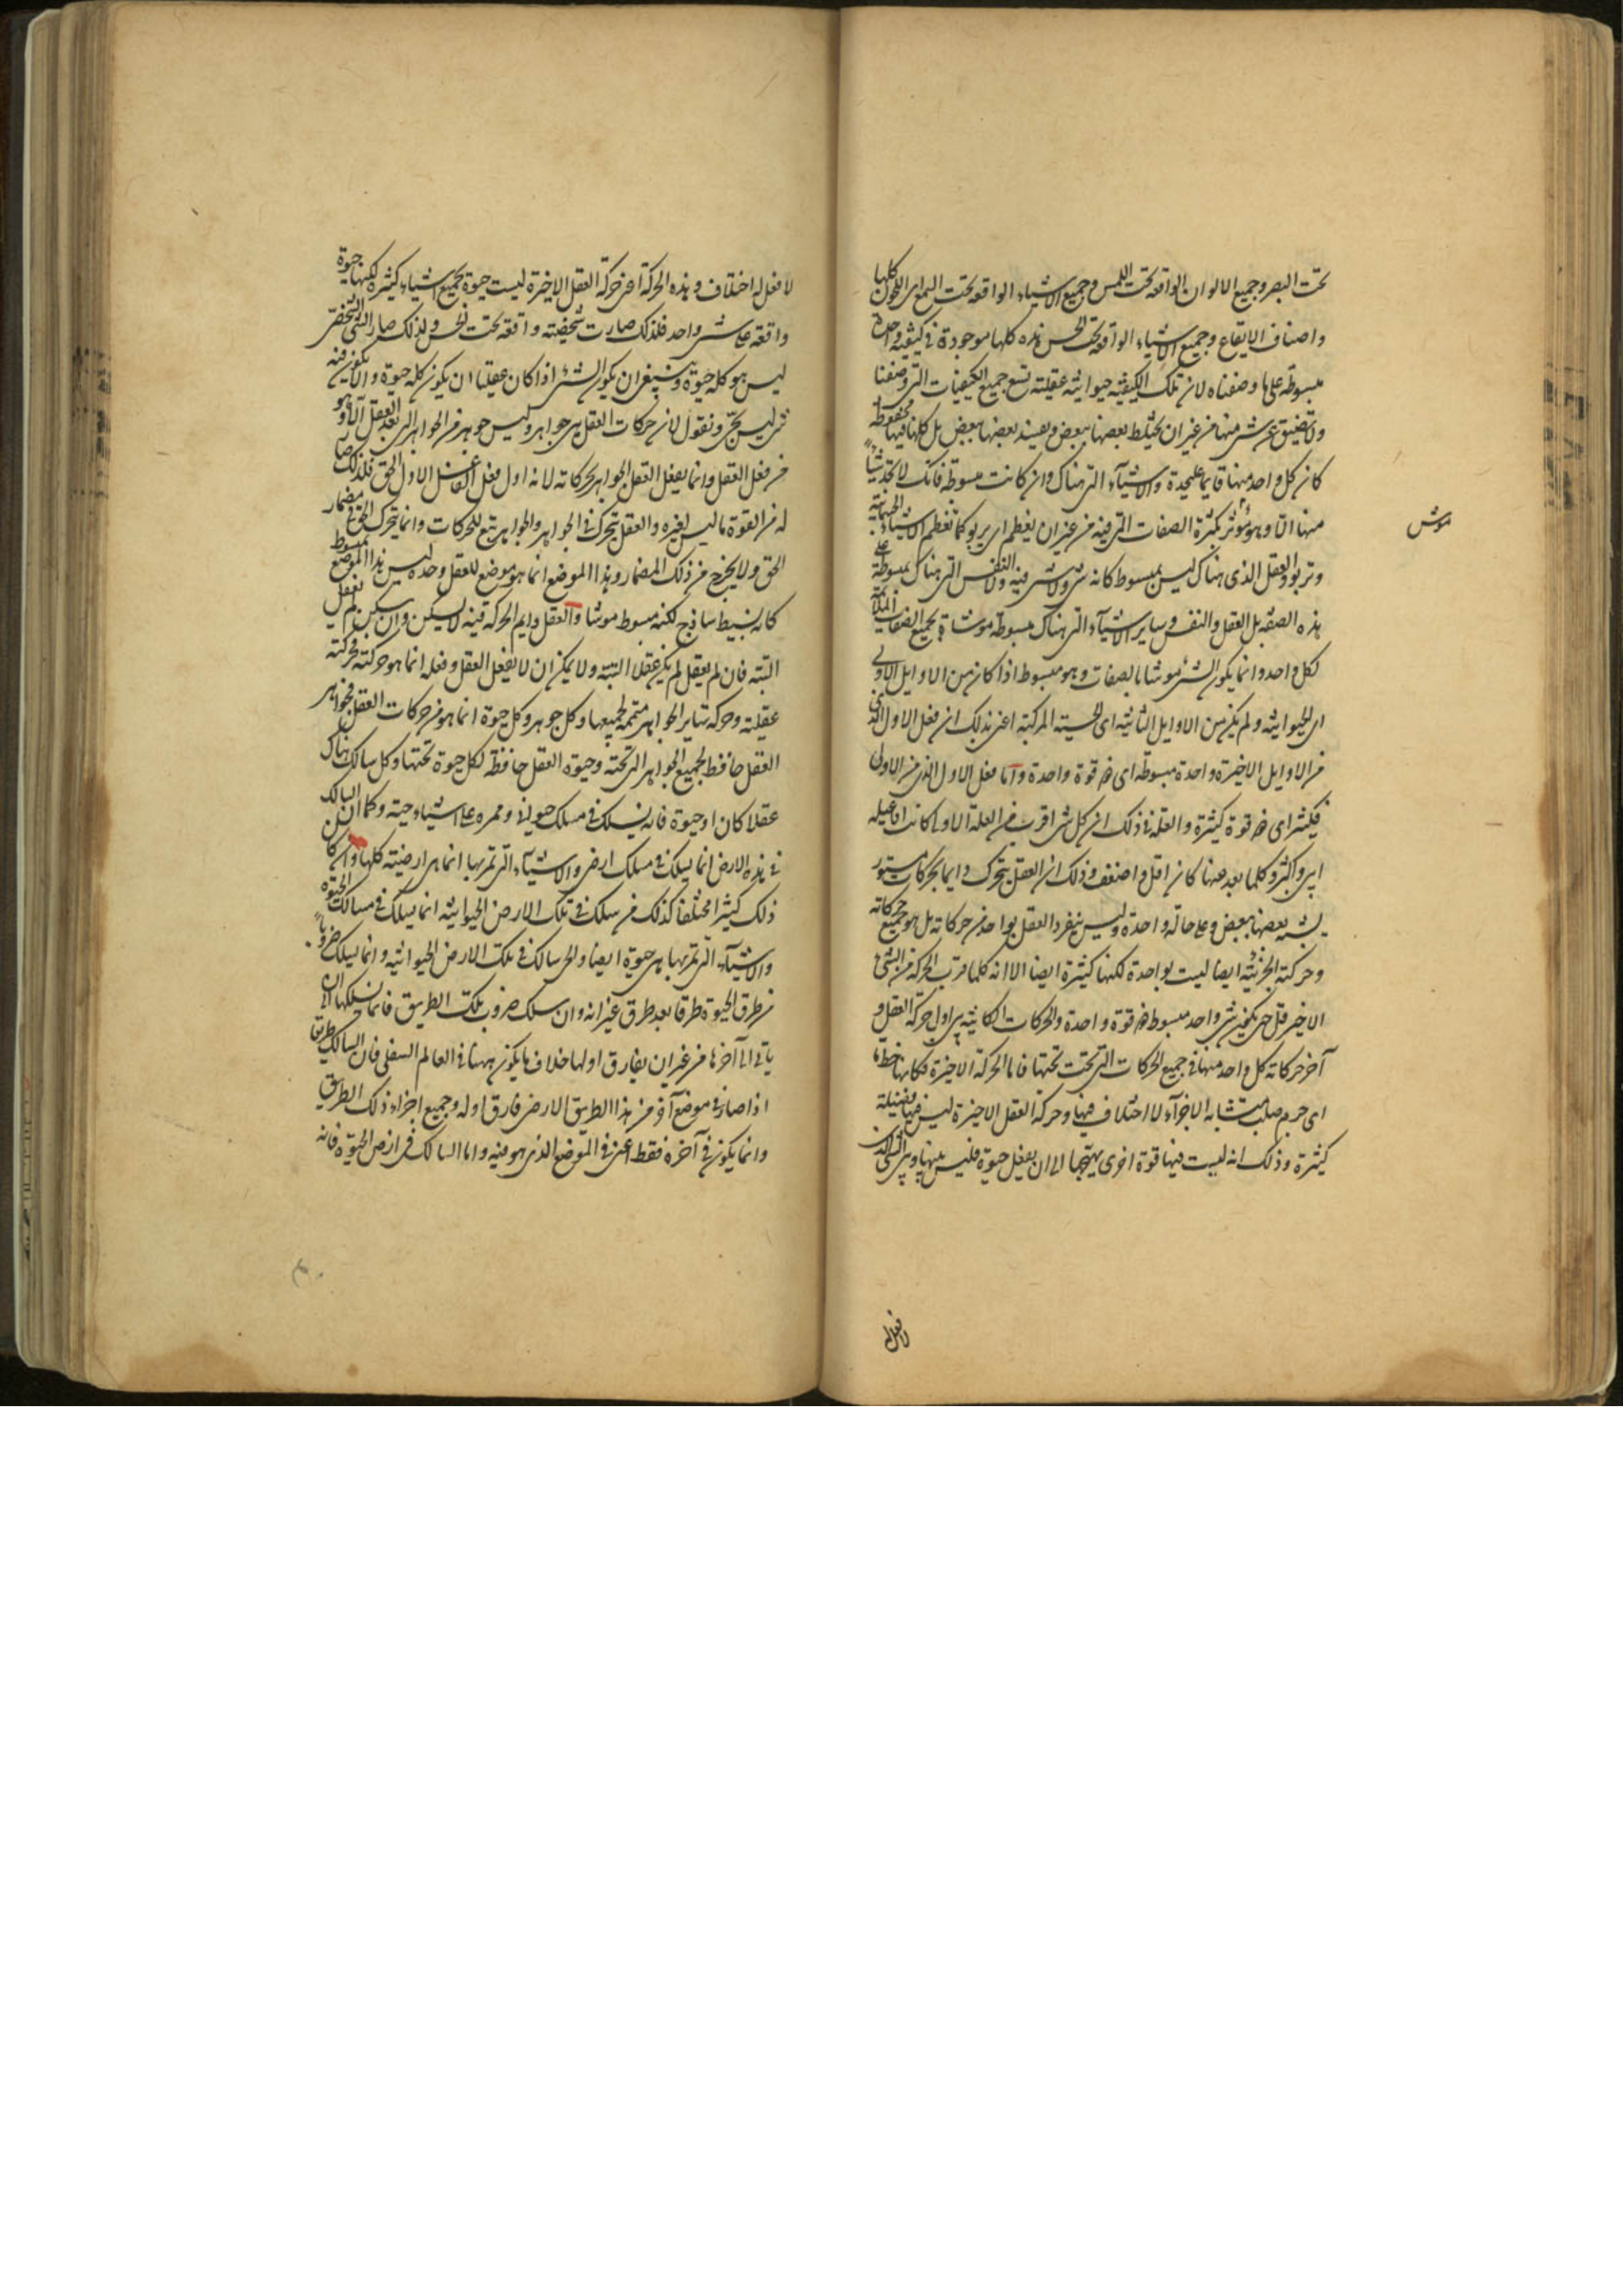 تحت البصر وجميع الالوان الواقعة تحت اللمس وجميع الاشياء الواقعة تحت السمع اى اللحون كلها
واصناف الايقاع وجميع الاشياء الواقعة تحت الحس هذه كلها موجودة فى كيفية واحدة
مبسوطة على ما وصفناه لان تلك الكيفية حيوانية عقلية تسع جميع الكيفيات التى وصفنا
ولا تضيق عن شئ منها من غير ان يختلط بعضها ببعض ويفسد بعضها ببعض بل كلها فيها محفوظة
كان كل واحد منها قايما على حدة والاشياء التى هناك وان كانت مبسوطة فانك لا تجد شيئا
منها الا وهو مؤثر بكثرة الصفات التى فيه من غير ان يعظم او يربو كما تعظم الاشياء الجسمانية
موش
وتربو والعقل الذى هناك ليس بمبسوط كانه شئ ولا شئ فيه ولا النفس التى هناك مبسوطة على
هذه الصفة بل العقل والنفس وساير الاشياء التى هناك مبسوطة موشاة بجميع الصفات الملايمة
لكل واحد وانما يكون الشئ موشا بالصفات وهو مبسوط اذا كان من الاوايل الاولى
اى الحيوانية ولم يكن من الاوايل الثانية اى الحسية المركبة اعنى بذلك ان فعل الاول الذى
من الاوايل الاخيرة واحدة مبسوطة اى ذو قوة واحدة واما فعل الاول الذى من الاولى
فكثير اى ذو قوة كثيرة والعلة فى ذلك ان كل شئ اقرب من العلة الاولى كانت افاعيله
ابين واكثر وكلما بعد عنها كان اقل واضعف وذلك ان العقل يتحرك دايما بحركات مستوى
يشبه بعضها ببعض وعلى حالة واحدة وليس ينفرد العقل بواحد من حركاته بل هو جميع حركاته
وحركته الجزئية ايضا ليست بواحدة لكنها كثيرة ايضا الا انه كلما قرب الحركة من الشئ
الاخير قل حتى يكون شئ واحد مبسوط ذو قوة واحدة والحركات الكائنة بين اول حركة العقل و
آخر حركاته كل واحد منها فى جميع الحركات التى تحت تحتها فاما الحركة الاخيرة فكانها خط ما
اى جرم صلب متشابه الاجزآء لا اختلاف فيها وحركة العقل الاخيرة ليس فيها فضيلة
كثيرة وذلك انه ليست فيها قوة اخرى يهيجها الى ان يفعل حيوة فليس بينها وبين الشئ الذى
لا فعل له
لا فعل له اختلاف وهذه الحركة اعنى حركة العقل الاخيرة ليست حيوة بجميع اشياء كثيرة لكنها حيوة
واقعة على شئ واحد فلذلك صارت شخصية واقعة تحت الحس ولذلك صار الشئ الشخصى
ليس هو كله حيوة وينبغى ان يكون الشئ اذا كان عقليا ان يكون كله حيوة والا يكون فيه
شئ ليس بحى ونقول ان حركات العقل هى جواهر وليس جوهر من الجواهر التى بعد العقل الا وهو
من فعل العقل وانما يفعل العقل الجواهر بحركاته لانه اول فعل الفاعل الاول الحق فلذلك صار
له من القوة ما ليس لغيره والعقل يتحرك فى الجواهر والجواهر تتبع للحركات وانما يتحرك الحق فى مضمار
الحق ولا يخرج من ذلك المضمار وهذا الموضع انما هو موضع للعقل وحده ليس هذا الموضع بمبسوط
كانه بسيط ساذج لكنه مبسوط موشا والعقل دايم الحركة فيه لا يسكن وان سكن لم يفعل
البتة فان لم يعقل لم يكن عقلا البتة ولا يمكن ان لا يفعل العقل وفعله انما هو حركته فحركته
عقلية وحركة ساير الجواهر متممة لجميعها وكل جوهر وكل حيوة انما هو من حركات العقل فجواهر
العقل حافظ لجميع الجواهر التى تحته وحيوة العقل حافظة لكل حيوة تحتها وكل سالك هناك
عقلا كان او حيوة فانه يسلك فى مسلك حيوانى وممره على اشياء حية وكما ان السالك
فى هذه الارض انما يسلك فى مسلك ارضى والاشياء التى تمر بها انما هى ارضية كلها وان كان
ذلك كثيرا مختلفا كذلك من سلك فى تلك الارض الحيوانية انما يسلك فى مسالك الحيوة
والاشياء التى تمر بها هى حيوة ايضا والحى سالك فى تلك الارض الحيوانية وانما يسلك ضروبا
من طرق الحيوة طرقا بعد طرق غير انه وان سلك ضروب تلك الطريق فانما يسلكها الى ان
ياتى الى آخرها من غير ان يفارق اولها خلاف ما يكون ههنا فى العالم السفلى فان السالك طريق
اذا صار فى موضع آخر من هذا الطريق الارضى فارق اوله وجميع اجزاء ذلك الطريق
وانما يكون فى آخره فقط اعنى فى الموضع الذى هو فيه واما السالك فى ارض الحيوة فانه